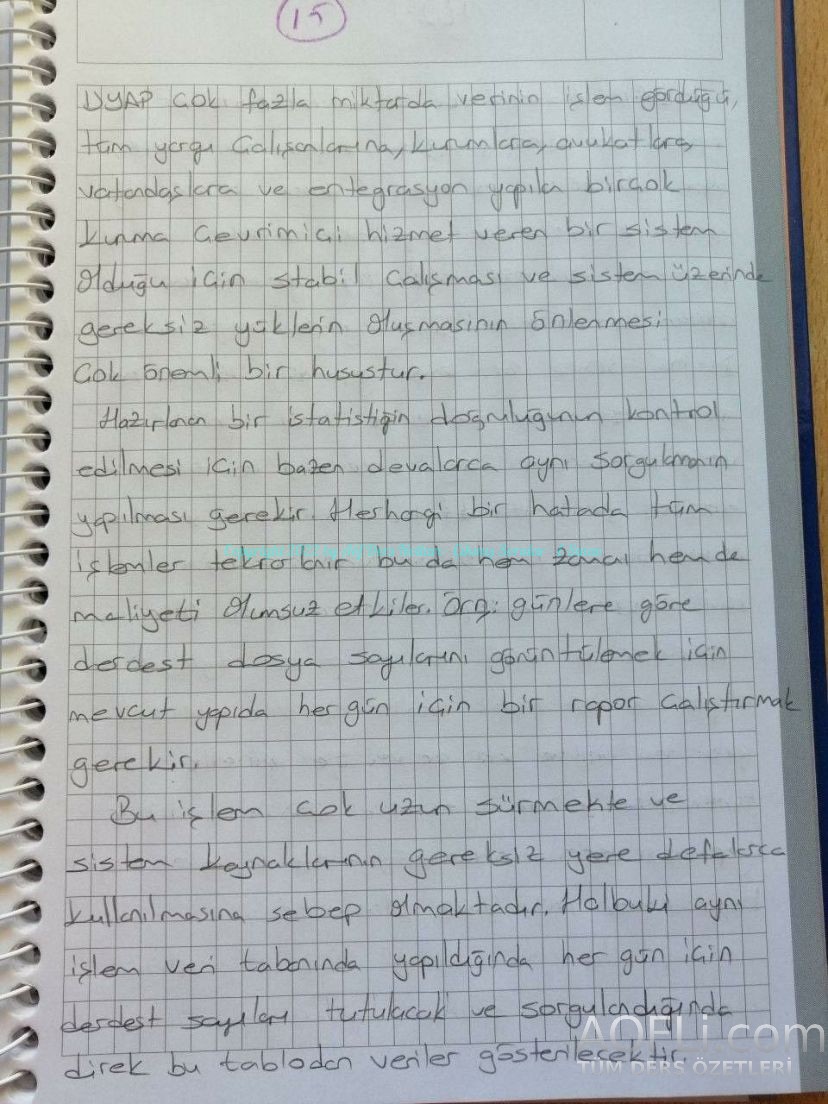 15
UYAP çok fazla miktarda verinin işlem gördüğü,
tüm yargı çalışanlarına, kurumlara, avukatlara,
vatandaşlara ve entegrasyon yapılan birçok
kuruma çevrimiçi hizmet veren bir sistem
olduğu için stabil çalışması ve sistem üzerinde
gereksiz yüklerin oluşmasının önlenmesi
çok önemli bir husustur.
Hazırlanan bir istatistiğin doğruluğunun kontrol
edilmesi için bazen defalarca aynı sorgulamanın
yapılması gerekir. Herhangi bir hatada tüm
işlemler tekrarlanır bu da hem zaman hem de
maliyeti olumsuz etkiler. Örg: günlere göre
derdest dosya sayılarını görüntülemek için
mevcut yapıda her gün için bir rapor çalıştırmak
gerekir.
Bu işlem çok uzun sürmekte ve
sistem kaynaklarının gereksiz yere defalarca
kullanılmasına sebep olmaktadır. Halbuki aynı
işlem veri tabanında yapıldığında her gün için
derdest sayıları tutulacak ve sorgulandığında
direk bu tablodan veriler gösterilecektir.
AOFLi.com
TÜM DERS ÖZETLERİ